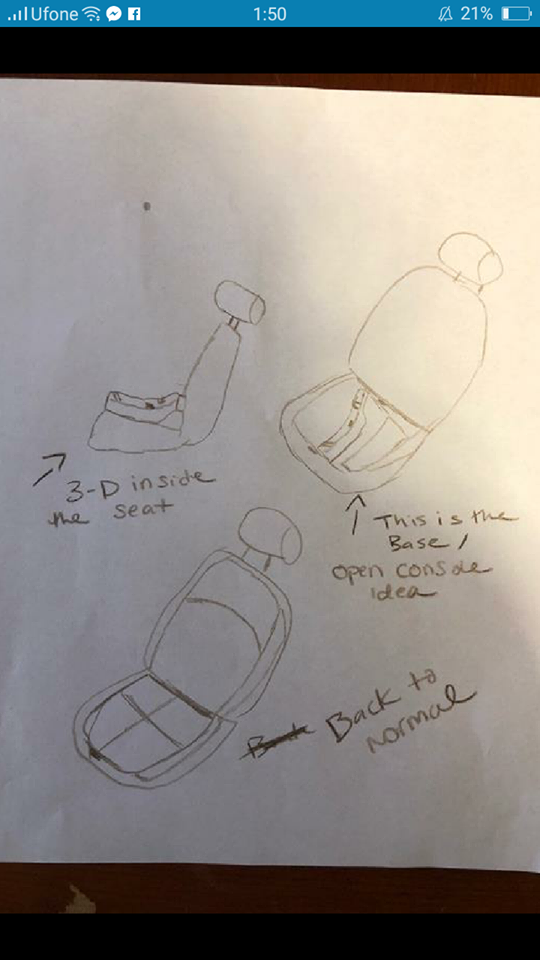 Ufone
1:50
21%
3-D inside
the seat
This is the
Base /
open console
idea
Back to
normal